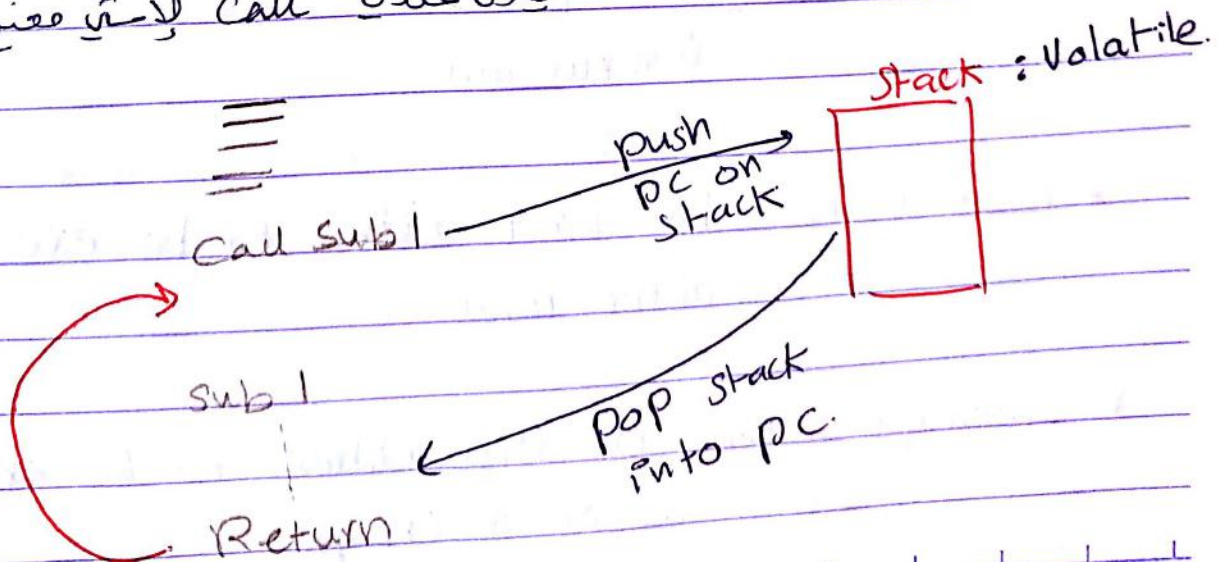 call لاشي
Stack : Volatile.
push
pc on
stack
Call Sub1
Sub 1
pop stack
into pc.
Return